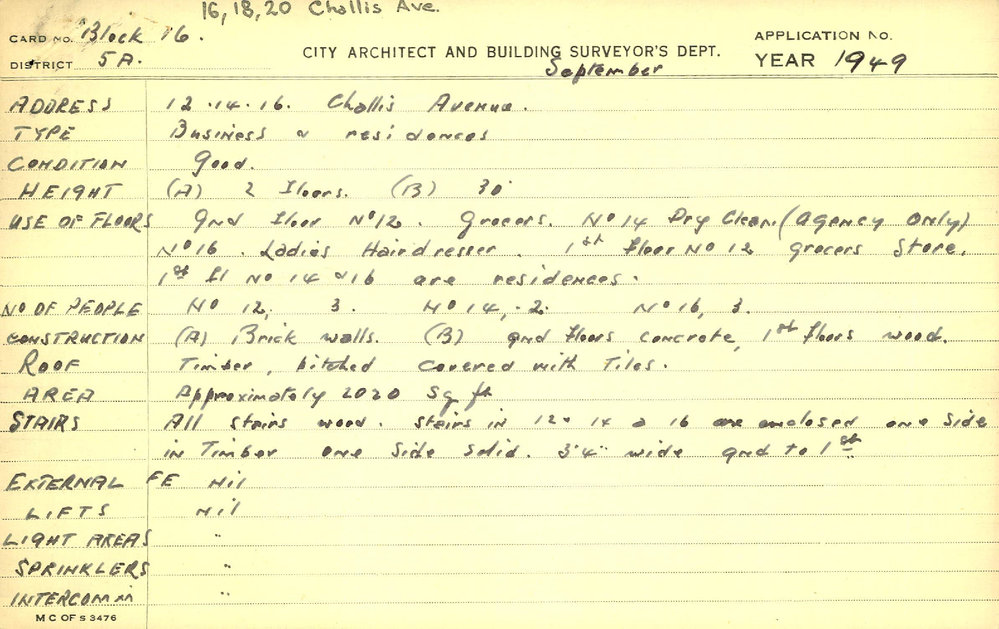 16, 18, 20 Challis Ave.
CARD NO. Block 16.
DISTRICT 5A.
CITY ARCHITECT AND BUILDING SURVEYOR'S DEPT.
September
APPLICATION NO.
YEAR 1949
ADDRESS 12.14.16. Challis Avenue.
TYPE Business & residences
CONDITION Good.
HEIGHT (A) 2 floors. (B) 30'
USE OF FLOORS Gnd floor No 12. Grocers. No 14 Dry Clean (Agency Only)
No 16. Ladies Hairdresser. 1st floor No 12 grocers Store.
1st fl No 14 & 16 are residences.
NO OF PEOPLE No 12, 3. No 14, 2. No 16, 3.
CONSTRUCTION (A) Brick walls. (B) gnd floors concrete, 1st floors wood.
ROOF Timber, pitched covered with Tiles.
AREA Approximately 2020 Sq ft
STAIRS All stairs wood. Stairs in 12 & 14 & 16 are enclosed one side
in Timber one Side Solid. 3'4" wide gnd to 1st
EXTERNAL FE Nil
LIFTS Nil
LIGHT AREAS "
SPRINKLERS "
INTERCOMM "
M C OF S 3476